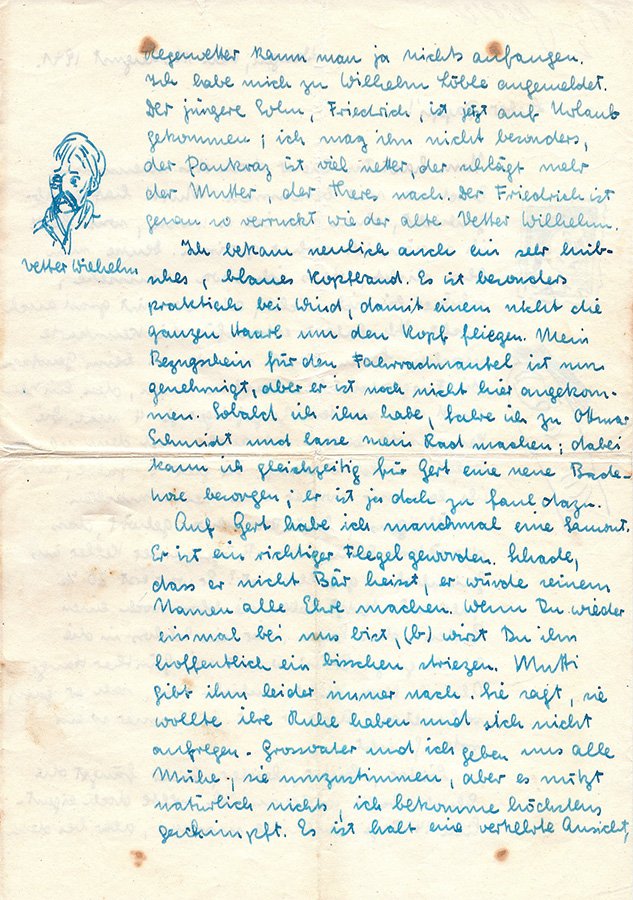 Regenwetter kann man ja nichts anfangen.
Ich habe mich zu Wilhelm Löble angemeldet.
Der jüngere Sohn, Friedrich, ist jetzt auf Urlaub
gekommen; ich mag ihn nicht besonders,
der Pankraz ist viel netter, der schlägt mehr
der Mutter, der Theres nach. Der Friedrich ist
genau so verruckt wie der alte Vetter Wilhelm.
Vetter Wilhelm
Ich bekam neulich auch ein sehr hüb-
sches, blaues Kopfband. Es ist besonders
praktisch bei Wind, damit einem nicht die
ganzen Haarl um den Kopf fliegen. Mein
Bezugschein für den Fahrradmantel ist nun
genehmigt, aber er ist noch nicht hier angekom-
men. Sobald ich ihn habe, fahre ich zu Otmar
Schmidt und lasse mein Rad machen; dabei
kann ich gleichzeitig für Gert eine neue Bade-
hose besorgen; er ist ja doch zu faul dazu.
Auf Gert habe ich manchmal eine Sauwut.
Er ist ein richtiger Flegel geworden. Schade,
dass er nicht Bär heisst, er würde seinem
Namen alle Ehre machen. Wenn Du wieder
einmal bei uns bist, (b) wirst Du ihn
hoffentlich ein bisschen striezen. Mutti
gibt ihm leider immer nach. Sie sagt, sie
wollte ihre Ruhe haben und sich nicht
aufregen. Grossvater und ich geben uns alle
Mühe, sie umzustimmen, aber es nützt
natürlich nichts, ich bekomme höchstens
geschimpft. Es ist halt eine verkehrte Ansicht,